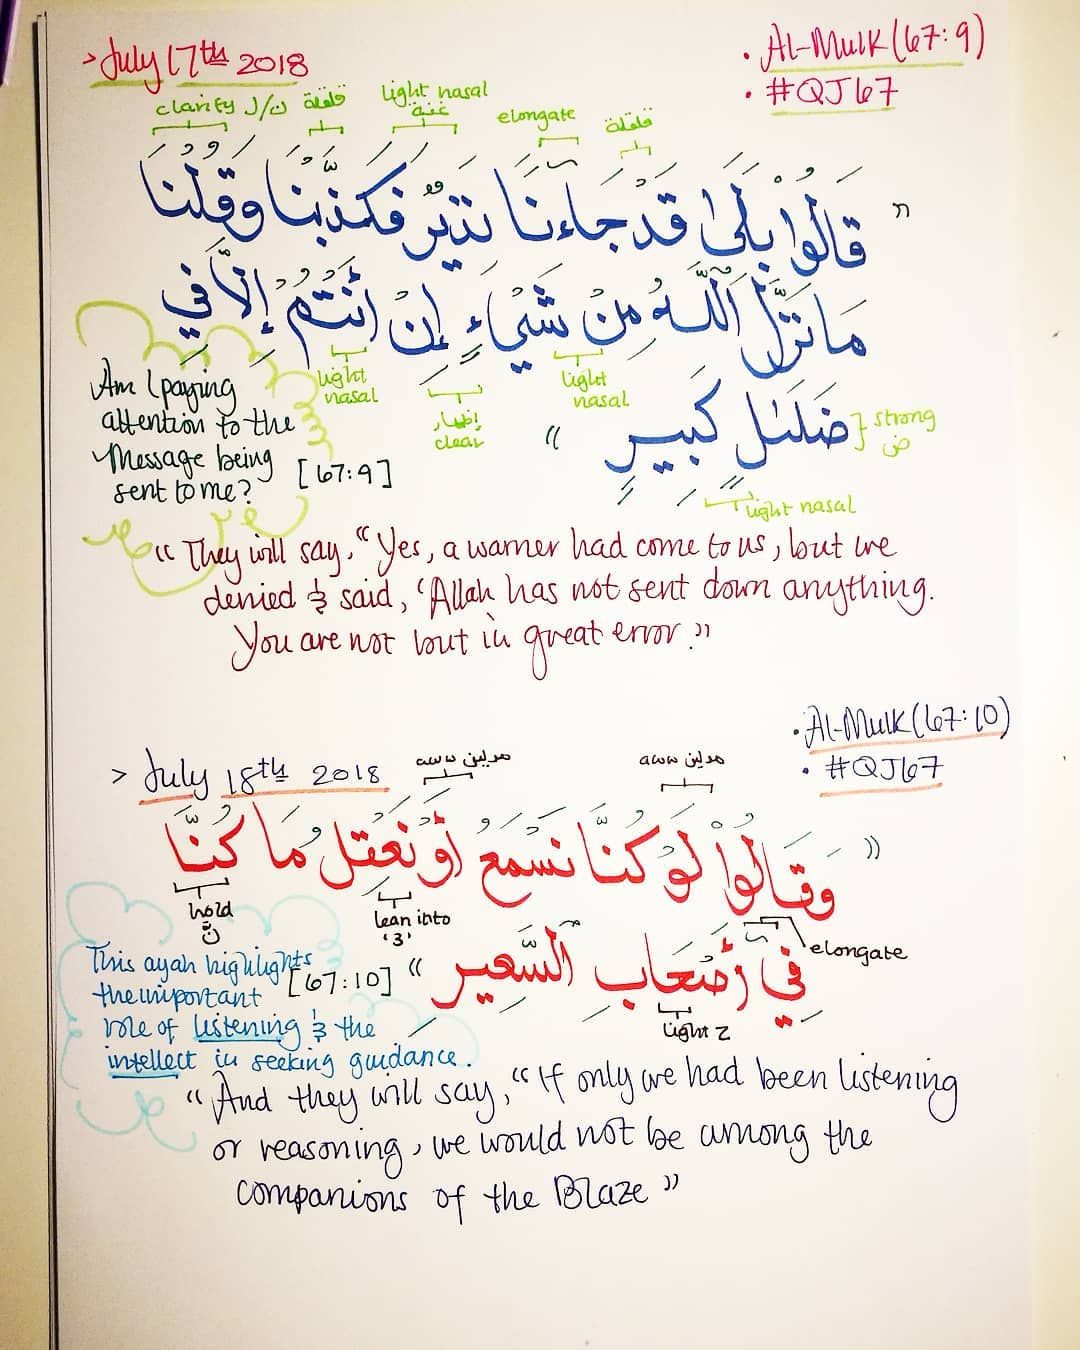 > July 17th 2018
• Al-Mulk (67:9)
• #QJ67
clarity ل/ن
قلقلة
light nasal
غنة
elongate
قلقلة
" قَالُوا۟ بَلَىٰ قَدْ جَآءَنَا نَذِيرٌ فَكَذَّبْنَا وَقُلْنَا
مَا نَزَّلَ ٱللَّهُ مِنْ شَىْءٍ إِنْ أَنْتُمْ إِلَّا فِي
light nasal
إظهار
clear
light nasal
ضَلَـٰلٍ كَبِيرٍ "
strong
ض
light nasal
Am I paying
attention to the
Message being
sent to me?
[67:9]
"They will say, "Yes, a warner had come to us, but we
denied & said, 'Allah has not sent down anything.
You are not but in great error."
• Al-Mulk (67:10)
• #QJ67
> July 18th 2018
مد لين
مد لين
" وَقَالُوا۟ لَوْ كُنَّا نَسْمَعُ أَوْ نَعْقِلُ مَا كُنَّا
hold
نّ
lean into
'3'
elongate
فِي أَصْحَابِ ٱلسَّعِيرِ "
light ح
[67:10]
This ayah highlights
the important
role of listening & the
intellect in seeking guidance.
"And they will say, "If only we had been listening
or reasoning, we would not be among the
companions of the Blaze"